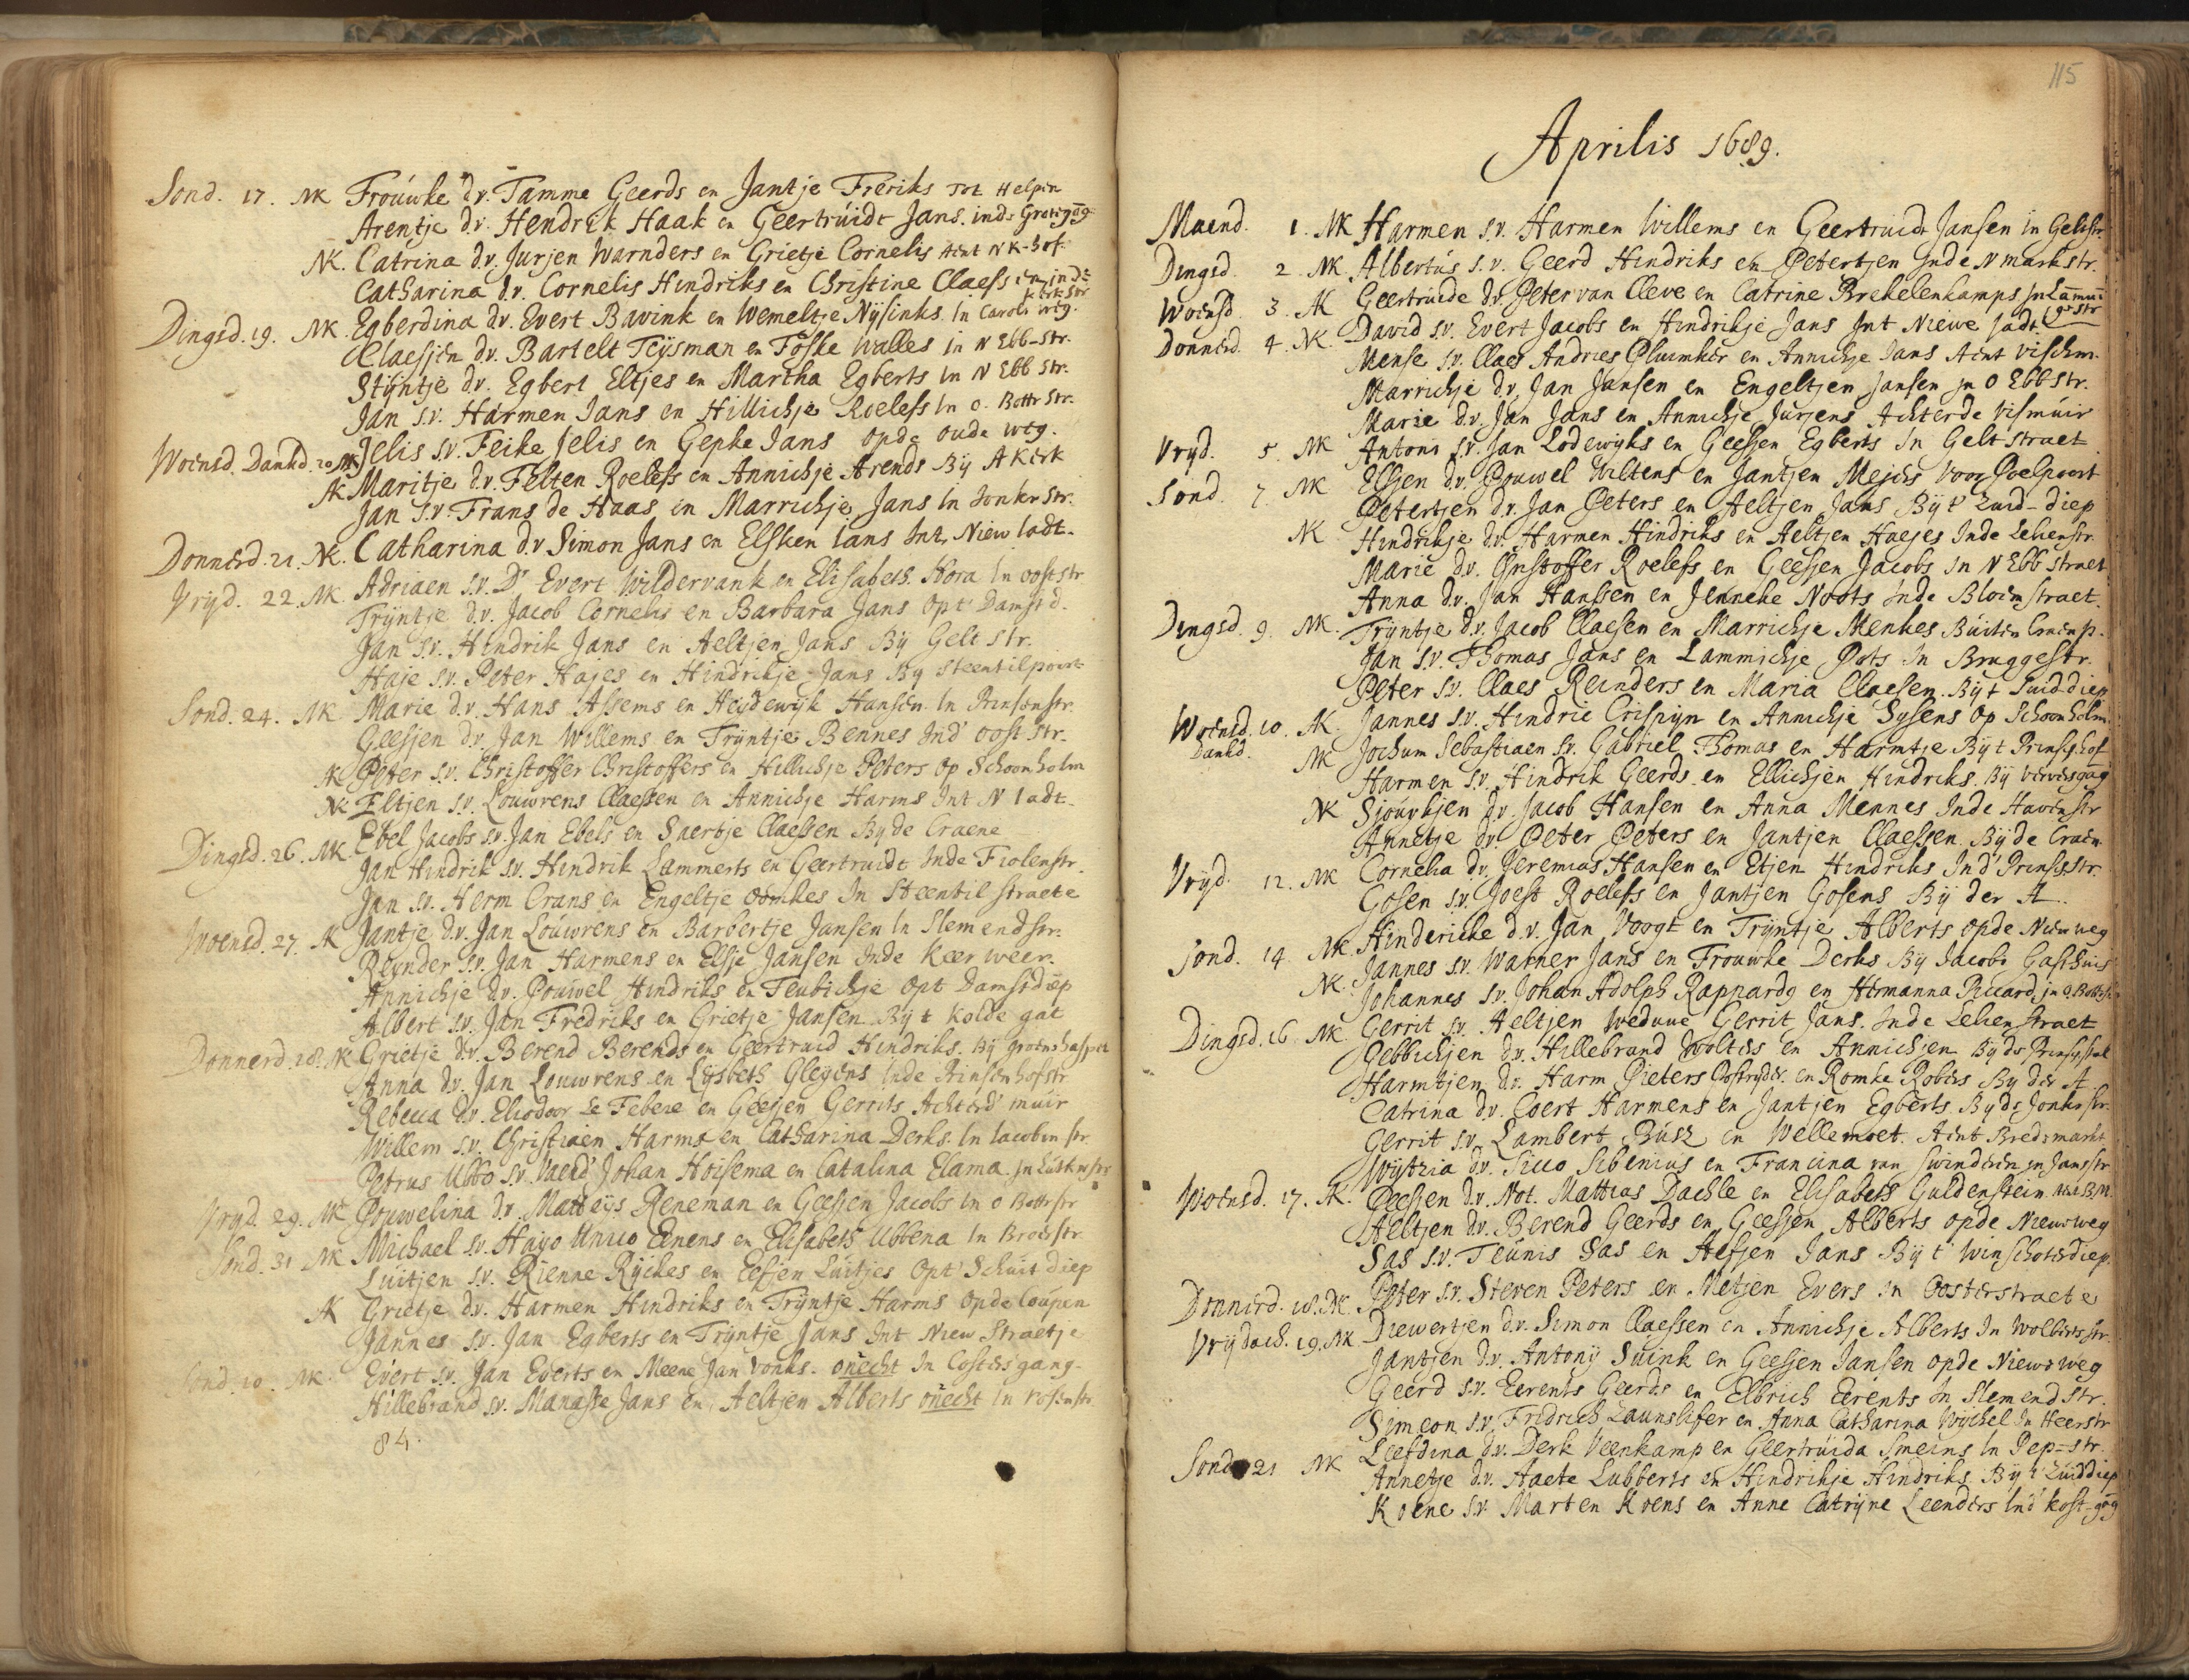 Sond. 17. MK Frouwke d.v. Tamme Geerds en Jantje Freriks tot Helpen
Arentje d.v. Hendrik Haak en Geertruidt Jans. inde
NK. Catrina d.v. Jurjen Warnders en Grietje Cornelis Aent NK-hof
Catharina d.v. Cornelis Hindriks en Christine Claess in de
kerk str
Dingsd. 19. MK Egberdina d.v. Evert Bavink en Wemeltje Nysinks. in Caroli weg.
Claesjen d.v. Bartelt Teysman en Foske Walles in N Ebb-str.
Stijntje d.v. Egbert Eltjes en Martha Egberts in N Ebb str.
Jan s.v. Harmen Jans en Hillichje Roelefs in O. Bottr str.
Woensd. Dankd. 20 MK Jelis s.v. Feike Jelis en Gepke Jans opde oude weg.
AK Maritje d.v. Felten Roelefs en Annichje Arends By A kerk
Jan s.v. Frans de Haas en Marrichje Jans in Jonkr str.
Donnerd. 21. NK. Catharina d.v Simon Jans en Elsken Jans Int Niew ladt.
Vryd. 22. MK. Adriaen s.v. Dr Evert Wildervank en Elisabeth Hora in oost str
Tryntje d.v. Jacob Cornelis en Barbara Jans opt Damst d.
Jan s.v. Hindrik Jans en Aeltjen Jans By Gelt str.
Haje s.v. Peter Hajes en Hindrikje Jans By Steentilpoort
Sond. 24. MK Marie d.v. Hans Assems en Heydewyk Hansen in Prinsenstr.
Geesjen d.v. Jan Willems en Tryntje Bennes Ind oost str.
AK Peter s.v. Christoffer Christoffers en Hillichje Peters op Schoonholm
NK Eltjen s.v. Louwrens Claessen en Annichje Harms Int N ladt.
Dingsd. 26. MK. Ebel Jacobs s.v. Jan Ebels en Saertje Claessen By de Craene
Jan Hindrik s.v. Hindrik Lammerts en Geertruidt Inde Fiolenstr.
Jan s.v. Herm Crans en Engeltje Oomkes In Steentil straete
Woensd. 27. AK Jantje d.v. Jan Louwrens en Barbertje Jansen in Slemendstr.
Reynder s.v. Jan Harmens en Elsje Jansen Inde Keer weer.
Annichje d.v. Pouwel Hindriks en Teubichje opt Damstdiep
Albert s.v. Jan Fredriks en Grietje Jansen By t Kolde gat
Donnerd. 28. NK Grietje d.v. Berend Berends en Geertruid Hindriks. By
Anna d.v. Jan Louwrens en Lysbeth Gleyens Inde Prinsenhofstr
Rebecca d.v. Eliodoor Le Febere en Geesjen Gerrits Achterd' muir
Willem s.v. Christiaen Harms en Catharina Derks. in Jacobin str.
Petrus Ubbo s.v. Vaend' Johan Hoisema en Catalina Elama. in
Vryd. 29. MK Pouwelina d.v. Matteys Reneman en Geessen Jacobs in O Bottr str
Sond. 31 MK Michael s.v. Hayo Unico Eenens en Elisabeth Ubbena in Broerstr
Luitjen s.v. Rienne Ryckes en Eefjen Luitjes opt Schuit diep
AK Grietje d.v. Harmen Hindriks en Tryntje Harms opde loupen
Jannes s.v. Jan Egberts en Tryntje Jans Int Niew Straetje
Sond. 10. MK Evert s.v. Jan Everts en Meene Jan Vonks. onecht in Costers gang.
Hillebrand s.v. Manasse Jans en Aeltjen Alberts onecht in rosenstr.
84.
115
Aprilis 1689.
Maend. 1. MK Harmen s.v. Harmen Willems en Geertruidt Jansen in Geltstr.
Dingsd. 2 MK Albertus s.v. Geerd Hindriks en Petertjen Inde N markt str.
Woensd. 3. AK Geertruide d.v. Peter van Cleve en Catrine Brekelenkamps
Donnerd. 4. NK. David s.v. Evert Jacobs en Hindrikje Jans Int Niewe ladt
Mense s.v. Claes Andries Pluimker en Annichje Jans Aent vischm.
Marrichje d.v. Jan Jansen en Engeltjen Jansen in O Ebbstr.
Marie d.v. Jan Jans en Annichje Jurjens Achterde vismuir
Vryd. 5. MK Antoni s.v. Jan Lodewyks en Geessen Egberts in Gelt straet
Sond. 7. MK Elsjen d.v. Pouwel Wiltens en Jantjen Mejers voor Poelpoort
Petertjen d.v. Jan Peters en Aeltjen Jans By t' Zuid-diep
NK Hindrikje d.v. Harmen Hindriks en Aeltjen Haejes Inde Lelienstr
Marie d.v. Cristoffer Roelefs en Geesjen Jacobs in N Ebb straet
Anna d.v. Jan Hanssen en Jenneke Noots inde Bloemstraet.
Dingsd. 9. MK. Tryntje d.v. Jacob Claesen en Marrichje Menkes Buiten Craenp.
Jan s.v. Thomas Jans en Lammichje Pots in Bruggestr.
Peter s.v. Claes Reinders en Maria Claesen. By t Suid-diep
Woensd. 10. AK. Jannes s.v. Hindric Crispyn en Annichje Sysens op Schoonholm.
Dankd. MK Jochum Sebastiaen s.v. Gabriel Thomas en Harmtje By t Prinsenhof
Harmen s.v. Hindrik Geerds en Ellichjen Hindriks. By
NK Sjourkjen d.v. Jacob Hansen en Anna Mennes Inde Havenstr
Annetje d.v. Peter Peters en Jantjen Claessen. By de Craen.
Vryd. 12. MK Cornelia d.v. Jeremias Hansen en Etjen Hindriks Ind' Prinsstr.
Gosen s.v. Joest Roelefs en Jantjen Gosens By der A.
Sond. 14. MK. Hindericke d.v. Jan Voogt en Tryntje Alberts opde Niew weg
NK. Jannes s.v. Warner Jans en Frouwke Derks By Jacobs Gasthuis
Johannes s.v. Johan Adolph Rappardg en Hermanna Piccard, in O. Bottr
Dingsd. 16 MK. Gerrit s.v. Aeltjen Weduwe Gerrit Jans. Inde Lelien straet
Gebbichjen d.v. Hillebrand Wolters en Annichjen By de Prinsestal
Harmtjen d.v. Harm Pieters Postryder. en Romke Robers By der A.
Catrina d.v. Coert Harmens en Jantjen Egberts. By de Jonkrstr.
Gerrit s.v. Lambert Busz en Wellemoet. Aent Bredemarkt
Wytzia d.v. Sicco Sibenius en Francina van Swinderen in Jansstr
Woensd. 17. AK. Geessen d.v. Not. Mattias Dachle en Elisabeth Guldenstein
Aeltjen d.v. Berend Geerds en Geessen Alberts opde Nieuwweg
Sas s.v. Teunis Sas en Aefjen Jans By t' Winschoterdiep.
Donnerd. 18. NK. Peter s.v. Steven Peters en Metjen Evers in Oosterstraete
Vrydach. 19. MK Diewertjen d.v. Simon Claessen en Annichje Alberts In Wolbertsstr.
Jantjen d.v. Antony Suink en Geesjen Jansen opde Niewe weg
Geerd s.v. Eerents Geerds en Elbrich Eerents in Slemendstr.
Simeon s.v. Fridrich Zaunslifer en Anna Catharina Wychel In Heerstr
Sond. 21 MK Leefdina d.v. Derk Veenkamp en Geertruida Smeins in Pep-str.
Annetje d.v. Haete Lubberts en Hindrikje Hindriks. By t' Zuiddiep
Koene s.v. Marten Koens en Anne Catryne Leenders Ind' kost-gang